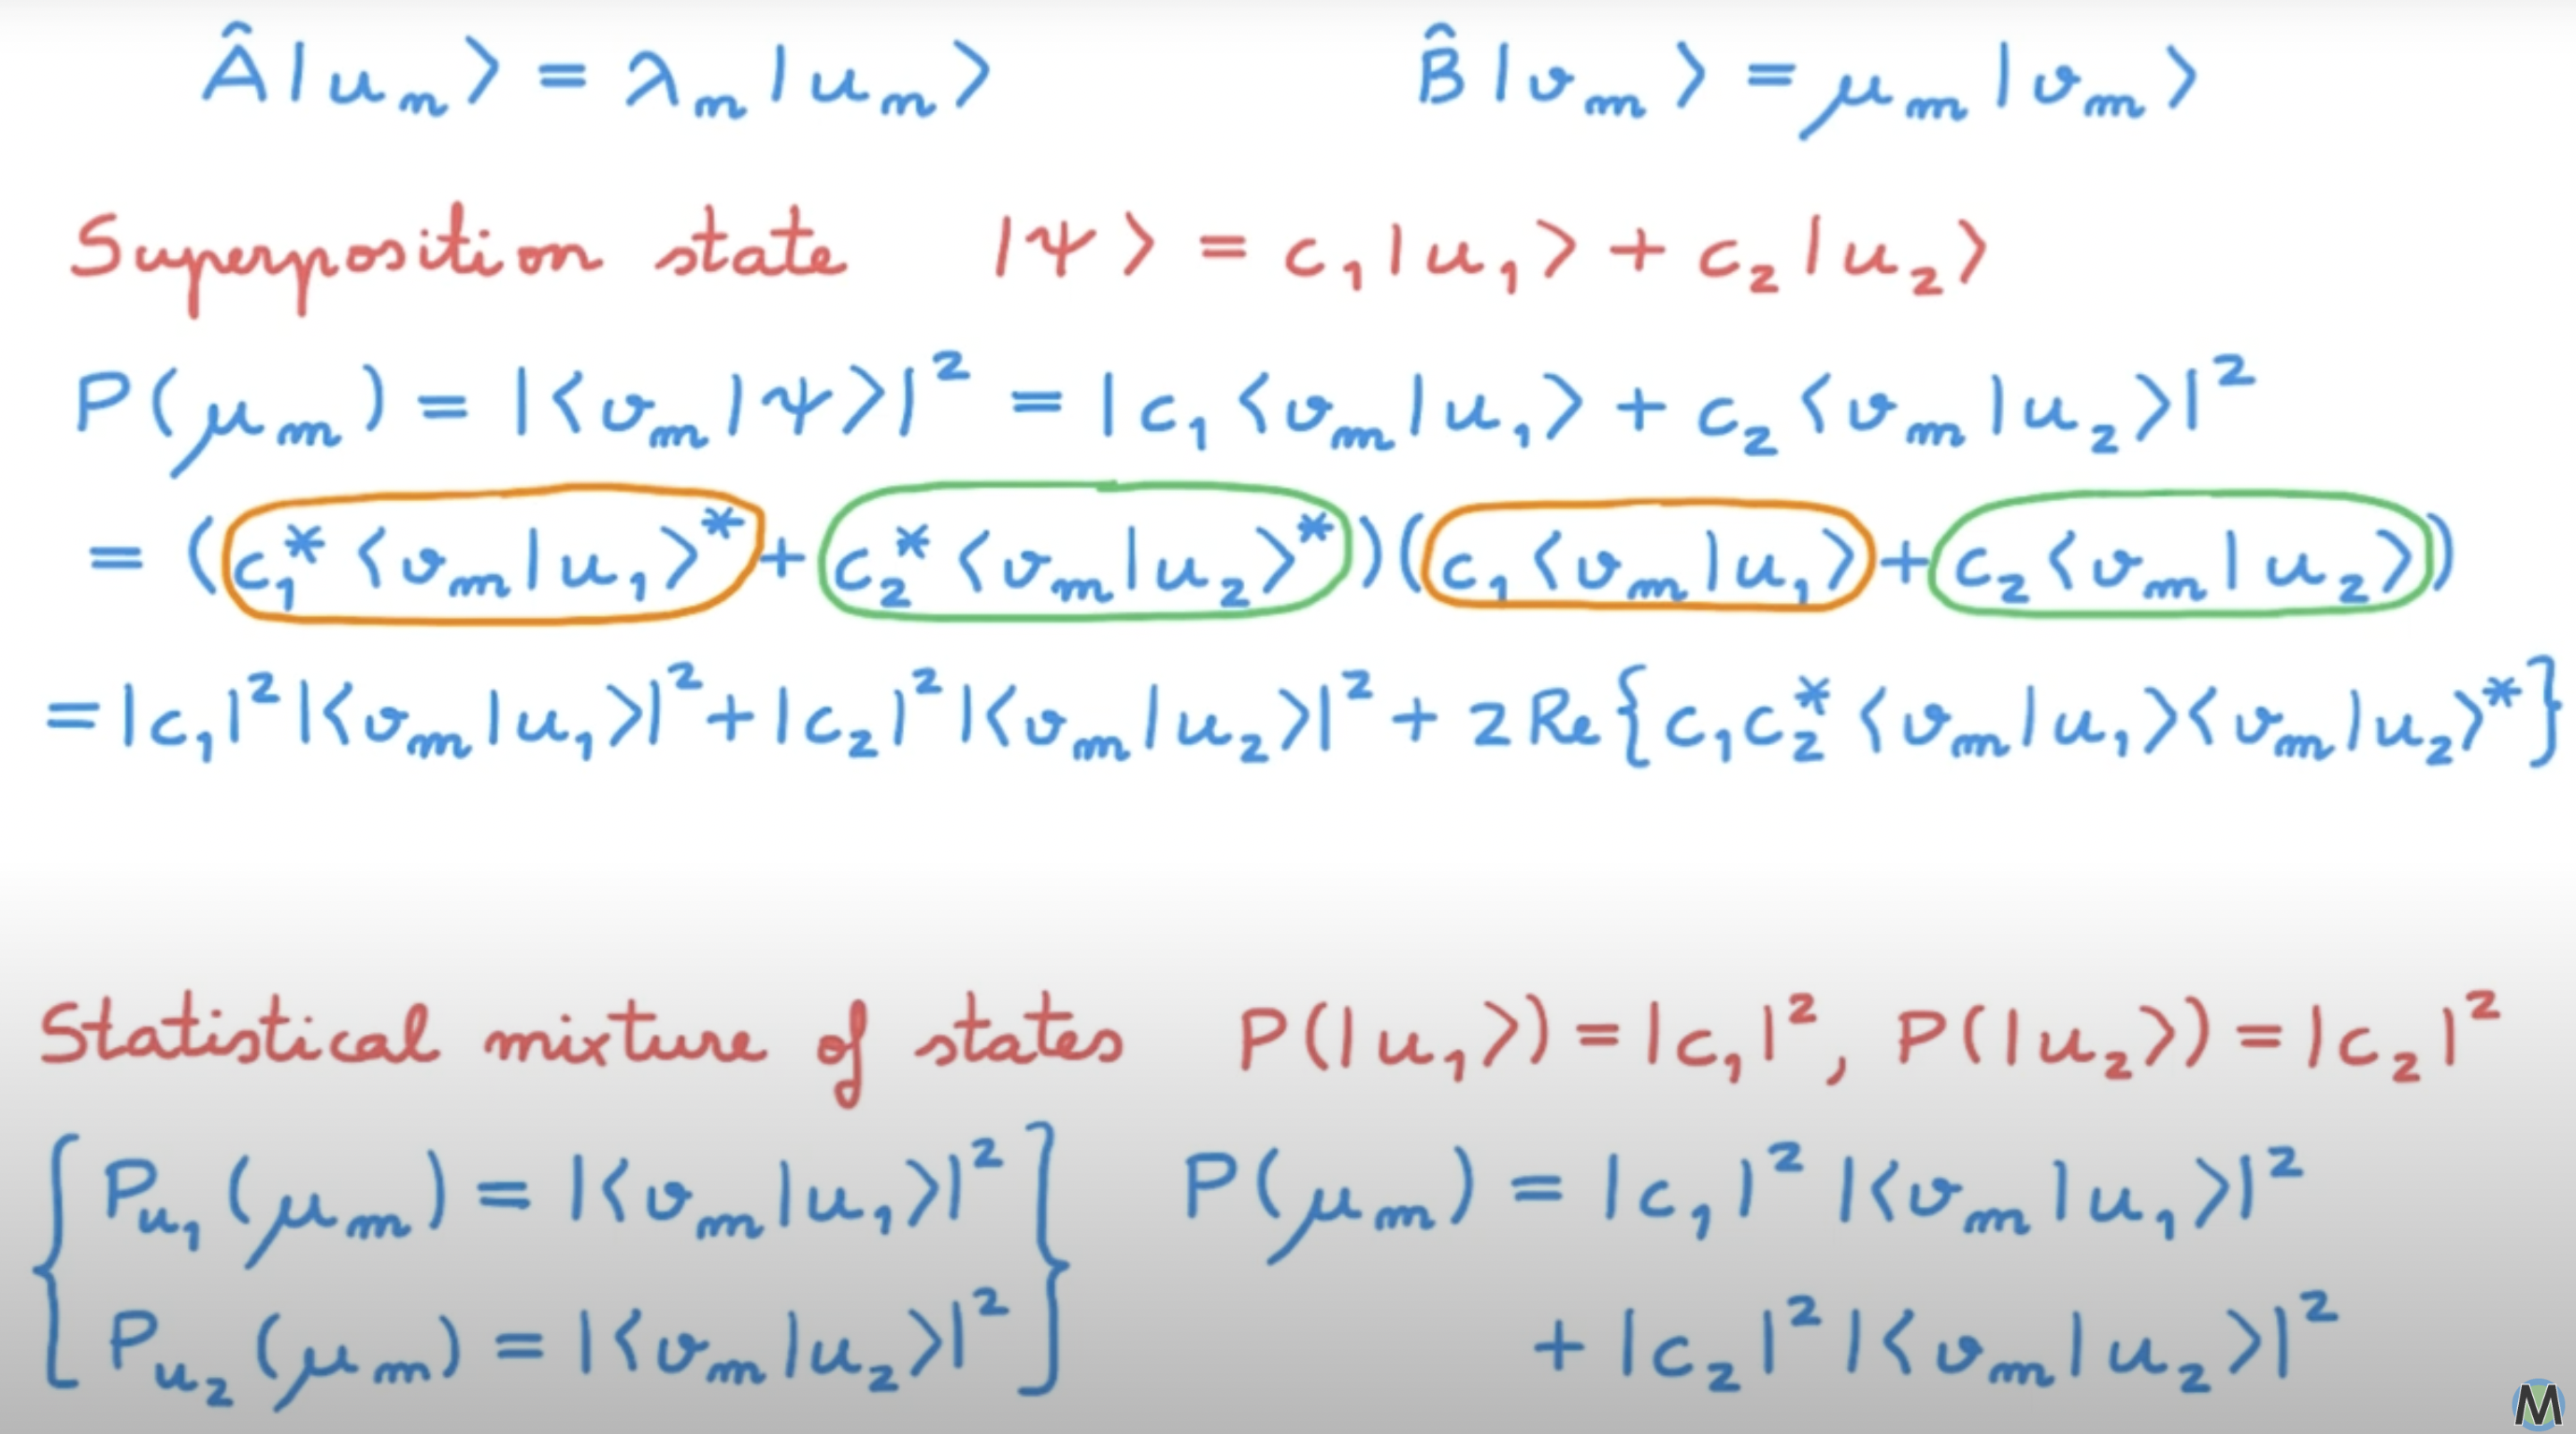 Â|uₙ⟩ = λₙ|uₙ⟩ B̂|vₘ⟩ = μₘ|vₘ⟩
Superposition state |ψ⟩ = c₁|u₁⟩ + c₂|u₂⟩
P(μₘ) = |⟨vₘ|ψ⟩|² = |c₁⟨vₘ|u₁⟩ + c₂⟨vₘ|u₂⟩|²
= (c₁*⟨vₘ|u₁⟩* + c₂*⟨vₘ|u₂⟩*)(c₁⟨vₘ|u₁⟩ + c₂⟨vₘ|u₂⟩)
= |c₁|²|⟨vₘ|u₁⟩|² + |c₂|²|⟨vₘ|u₂⟩|² + 2Re{c₁c₂*⟨vₘ|u₁⟩⟨vₘ|u₂⟩*}
Statistical mixture of states P(|u₁⟩) = |c₁|², P(|u₂⟩) = |c₂|²
{ Pᵤ₁(μₘ) = |⟨vₘ|u₁⟩|² } P(μₘ) = |c₁|²|⟨vₘ|u₁⟩|²
Pᵤ₂(μₘ) = |⟨vₘ|u₂⟩|² + |c₂|²|⟨vₘ|u₂⟩|²
M